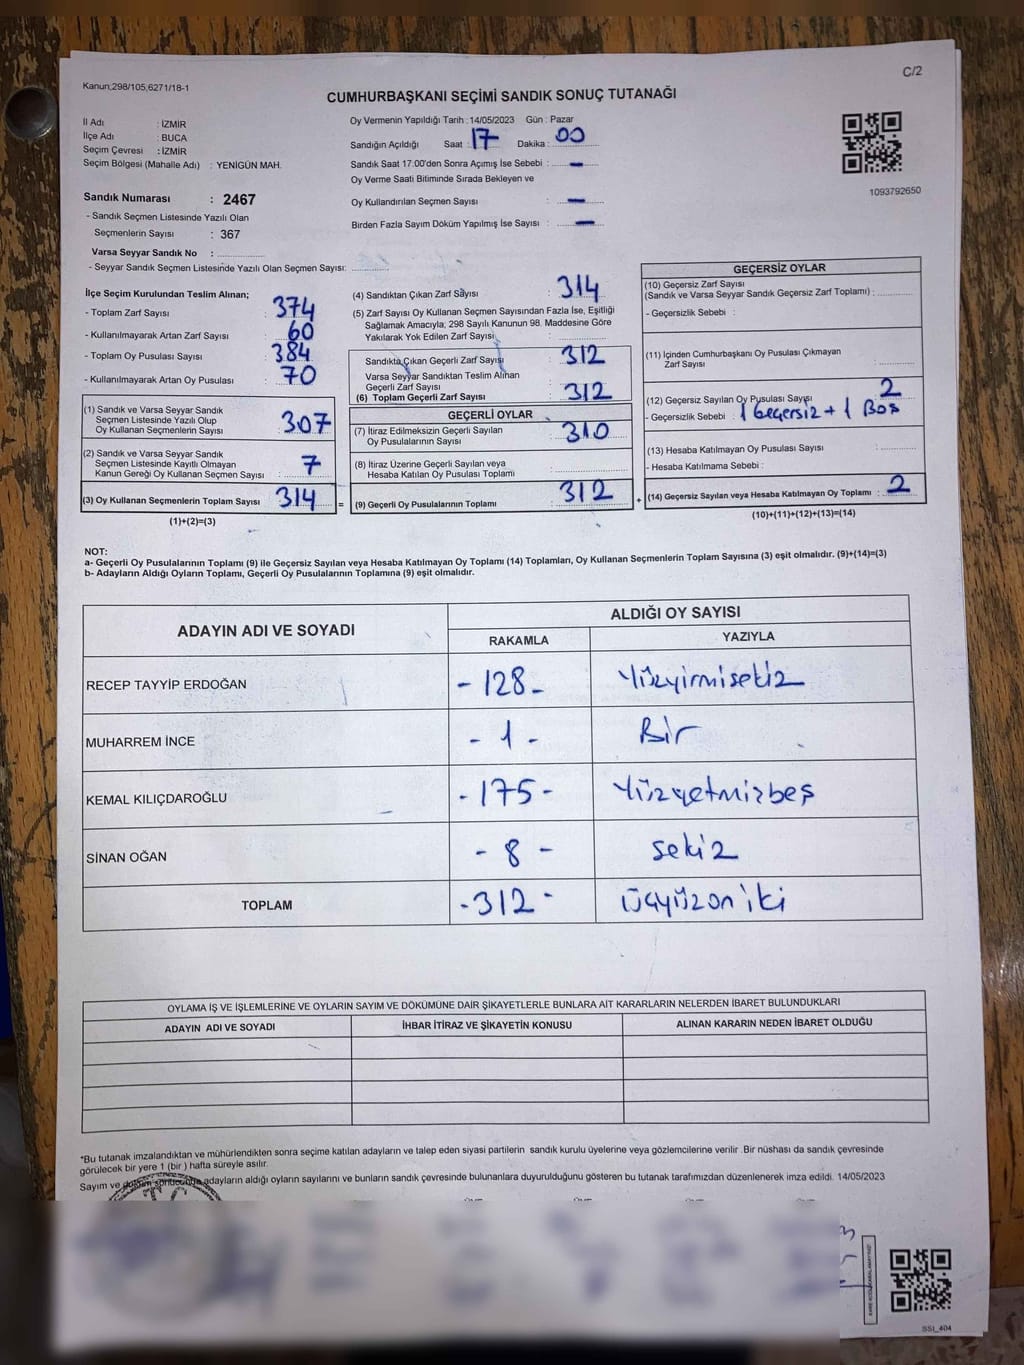 Kanun;298/105,6271/18-1
C/2
CUMHURBAŞKANI SEÇİMİ SANDIK SONUÇ TUTANAĞI
İl Adı : İZMİR
İlçe Adı : BUCA
Seçim Çevresi : İZMİR
Seçim Bölgesi (Mahalle Adı) : YENİGÜN MAH.
Oy Vermenin Yapıldığı Tarih : 14/05/2023 Gün : Pazar
Sandığın Açıldığı Saat : 17 Dakika : 00
Sandık Saat 17:00'den Sonra Açımış İse Sebebi : -
Oy Verme Saati Bitiminde Sırada Bekleyen ve
Oy Kullandırılan Seçmen Sayısı : -
Birden Fazla Sayım Döküm Yapılmış İse Sayısı : -
1093792650
Sandık Numarası : 2467
- Sandık Seçmen Listesinde Yazılı Olan
Seçmenlerin Sayısı : 367
Varsa Seyyar Sandık No :
- Seyyar Sandık Seçmen Listesinde Yazılı Olan Seçmen Sayısı:
İlçe Seçim Kurulundan Teslim Alınan;
- Toplam Zarf Sayısı : 374
- Kullanılmayarak Artan Zarf Sayısı : 60
- Toplam Oy Pusulası Sayısı : 384
- Kullanılmayarak Artan Oy Pusulası : 70
(1) Sandık ve Varsa Seyyar Sandık
Seçmen Listesinde Yazılı Olup
Oy Kullanan Seçmenlerin Sayısı : 307
(2) Sandık ve Varsa Seyyar Sandık
Seçmen Listesinde Kayıtlı Olmayan
Kanun Gereği Oy Kullanan Seçmen Sayısı : 7
(3) Oy Kullanan Seçmenlerin Toplam Sayısı : 314 =
(1)+(2)=(3)
(4) Sandıktan Çıkan Zarf Sayısı : 314
(5) Zarf Sayısı Oy Kullanan Seçmen Sayısından Fazla İse, Eşitliği
Sağlamak Amacıyla; 298 Sayılı Kanunun 98. Maddesine Göre
Yakılarak Yok Edilen Zarf Sayısı :
Sandıkta Çıkan Geçerli Zarf Sayısı : 312
Varsa Seyyar Sandıktan Teslim Alınan
Geçerli Zarf Sayısı :
(6) Toplam Geçerli Zarf Sayısı : 312
GEÇERLİ OYLAR
(7) İtiraz Edilmeksizin Geçerli Sayılan
Oy Pusulalarının Sayısı : 310
(8) İtiraz Üzerine Geçerli Sayılan veya
Hesaba Katılan Oy Pusulası Toplamı :
(9) Geçerli Oy Pusulalarının Toplamı : 312 +
GEÇERSİZ OYLAR
(10) Geçersiz Zarf Sayısı
(Sandık ve Varsa Seyyar Sandık Geçersiz Zarf Toplamı) :
- Geçersizlik Sebebi :
(11) İçinden Cumhurbaşkanı Oy Pusulası Çıkmayan
Zarf Sayısı :
(12) Geçersiz Sayılan Oy Pusulası Sayısı : 2
- Geçersizlik Sebebi : 1 Geçersiz + 1 Boş
(13) Hesaba Katılmayan Oy Pusulası Sayısı :
- Hesaba Katılmama Sebebi :
(14) Geçersiz Sayılan veya Hesaba Katılmayan Oy Toplamı : 2
(10)+(11)+(12)+(13)=(14)
NOT:
a- Geçerli Oy Pusulalarının Toplamı (9) ile Geçersiz Sayılan veya Hesaba Katılmayan Oy Toplamı (14) Toplamları, Oy Kullanan Seçmenlerin Toplam Sayısına (3) eşit olmalıdır. (9)+(14)=(3)
b- Adayların Aldığı Oyların Toplamı, Geçerli Oy Pusulalarının Toplamına (9) eşit olmalıdır.
ADAYIN ADI VE SOYADI
ALDIĞI OY SAYISI
RAKAMLA YAZIYLA
RECEP TAYYİP ERDOĞAN - 128 - Yüzyirmisekiz
MUHARREM İNCE - 1 - Bir
KEMAL KILIÇDAROĞLU - 175 - Yüzyetmişbeş
SİNAN OĞAN - 8 - sekiz
TOPLAM - 312 - üçyüzoniki
OYLAMA İŞ VE İŞLEMLERİNE VE OYLARIN SAYIM VE DÖKÜMÜNE DAİR ŞİKAYETLERLE BUNLARA AİT KARARLARIN NELERDEN İBARET BULUNDUKLARI
ADAYIN ADI VE SOYADI İHBAR İTİRAZ VE ŞİKAYETİN KONUSU ALINAN KARARIN NEDEN İBARET OLDUĞU
*Bu tutanak imzalandıktan ve mühürlendikten sonra seçime katılan adayların ve talep eden siyasi partilerin sandık kurulu üyelerine veya gözlemcilerine verilir. Bir nüshası da sandık çevresinde
görülecek bir yere 1 (bir ) hafta süreyle asılır.
Sayım ve döküm sonucunda adayların aldığı oyların sayılarını ve bunların sandık çevresinde bulunanlara duyurulduğunu gösteren bu tutanak tarafımızdan düzenlenerek imza edildi. 14/05/2023
T.C.
SSI_404